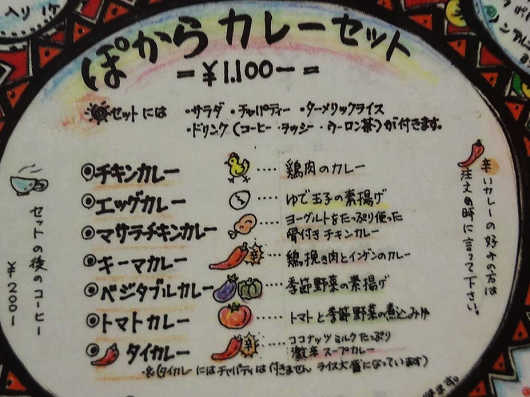 ぽからカレーセット
=¥1.100-=
セットには ・サラダ ・チャパティー ・ターメリックライス
・ドリンク(コーヒー・ラッシー・ウーロン茶)が付きます。
◎チキンカレー ……鶏肉のカレー
◎エッグカレー ……ゆで玉子の素揚げ
◎マサラチキンカレー ……ヨーグルトをたっぷり使った
骨付きチキンカレー
◎キーマカレー 辛 ……鶏挽き肉とインゲンのカレー
◎ベジタブルカレー ……季節野菜の素揚げ
◎トマトカレー ……トマトと季節野菜の煮込み
◎タイカレー 辛 ……ココナッツミルクたっぷり
激辛スープカレー
(タイカレーにはチャパティは付きません ライス大盛になっています)
辛いカレーの好みの方は
注文の時に言って下さい。
セットの後のコーヒー
¥200-